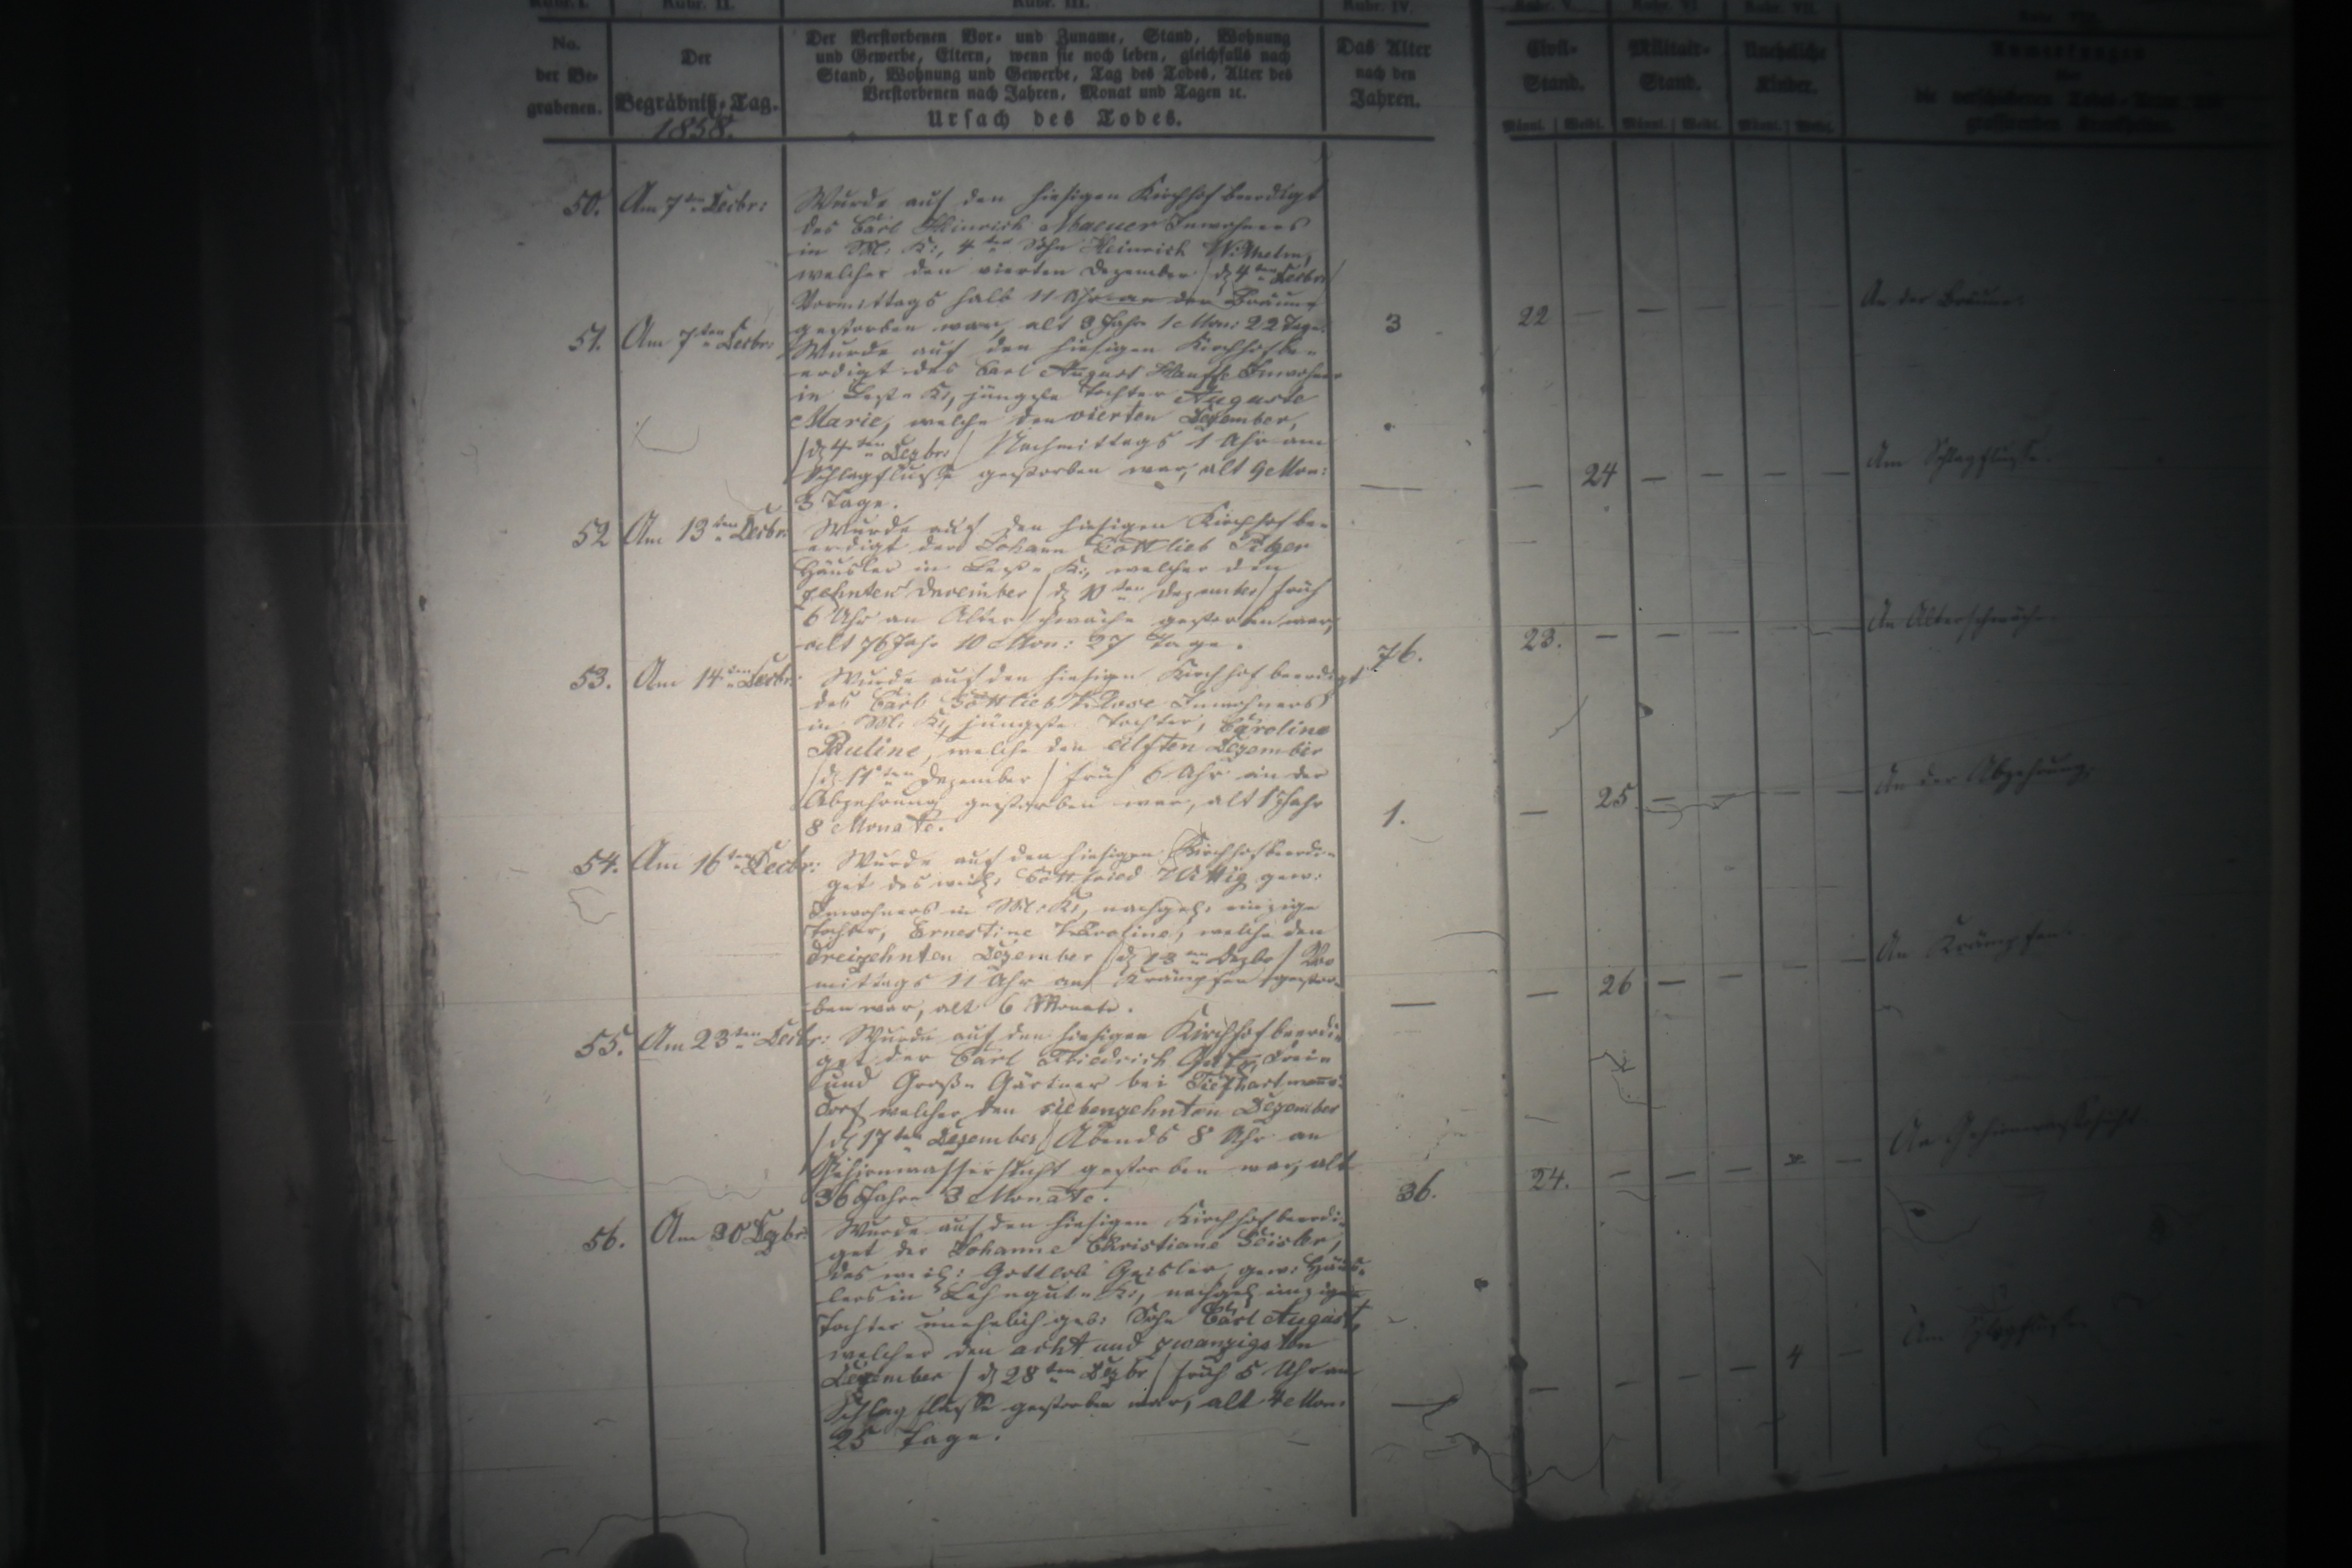 Rubr. I. Rubr. II. Rubr. III. Rubr. IV. Rubr. V. Rubr. VI Rubr. VII.
No.
der Be-
grabenen.
Der
Begräbniß-Tag.
1858.
Der Verstorbenen Vor- und Zuname, Stand, Wohnung
und Gewerbe, Eltern, wenn sie noch leben, gleichfalls nach
Stand, Wohnung und Gewerbe, Tag des Todes, Alter des
Verstorbenen nach Jahren, Monat und Tagen ꝛc.
Ursach des Todes.
Das Alter
nach den
Jahren.
Civil-
Stand.
Militair-
Stand.
Uneheliche
Kinder.
Anmerkungen
Männl. Weibl. Männl. Weibl. Männl. Weibl.
50. Am 7ten Decbr:
Wurde auf den hiesigen Kirchhof beerdigt
des Carl Heinrich Maeuer Inwohners
in M: K:, 4ter Sohn Heinrich Wilhelm,
welcher den vierten Dezember /d. 4ten Decbr:/
Vormittags halb 11 Uhr an der Bräune
gestorben war, alt 3 Jahr 1 Mon: 22 Tage.
3 22 — — — — — An der Bräune.
51. Am 7ten Decbr:
Wurde auf den hiesigen Kirchhof be-
erdigt des Carl August Inwohners
in K:, jüngste Tochter Auguste
Marie, welche den vierten Dezember,
/d. 4ten Dezbr:/ Nachmittags 1 Uhr am
Schlagflusse gestorben war, alt 9 Mon:
3 Tage.
— — 24 — — — — Am Schlagflusse.
52 Am 13ten Decbr:
Wurde auf den hiesigen Kirchhof be-
erdigt der Johann Gottlieb
Häusler in K:, welcher den
zehnten December /d. 10ten Dezember/ früh
6 Uhr an Altersschwäche gestorben war,
alt 76 Jahr 10 Mon: 27 Tage.
76. 23. — — — — — An Altersschwäche.
53. Am 14ten Decbr:
Wurde auf den hiesigen Kirchhof beerdigt
des Carl Gottlieb Klose Inwohners
in M: K:, jüngste Tochter, Caroline
Pauline, welche den eilften Dezember
/d. 11ten Dezember/ früh 6 Uhr an der
Abzehrung gestorben war, alt 1 Jahr
8 Monate.
1. — 25 — — — — An der Abzehrung.
54. Am 16ten Decbr:
Wurde auf den hiesigen Kirchhof beerdi-
get des weil: Gottfried Wittig gew:
Inwohners in M: K:, nachgel: einzige
Tochter, Ernestine Karoline, welche den
dreizehnten Dezember /d. 13ten Dezbr/ Vor
mittags 11 Uhr an Krämpfen gestor-
ben war, alt 6 Monate.
— — 26 — — — — An Krämpfen.
55. Am 23ten Decbr:
Wurde auf den hiesigen Kirchhof beerdi-
get der Carl Friedrich
und Große Gärtner bei Tiefhartmanns-
dorf welcher den siebenzehnten Dezember
/d. 17ten Dezember/ Abends 8 Uhr an
Gehirnwassersucht gestorben war, alt
36 Jahre 3 Monate.
36. 24. — — — — — An Gehirnwassersucht.
56. Am 30 Dzbr:
Wurde auf den hiesigen Kirchhof beerdi-
get der Johanne Christiane Geisler,
des weil: Gottlob Geisler, gew: Häus-
lers in Lehngut K:, nachgel: einzigen
Tochter unehelich geb: Sohn Carl August,
welcher den acht und zwanzigsten
Dezember /d. 28ten Dezbr/ früh 5 Uhr am
Schlagflusse gestorben war, alt 4 Mon:
25 Tage.
— — — — — 4 — Am Schlagflusse.